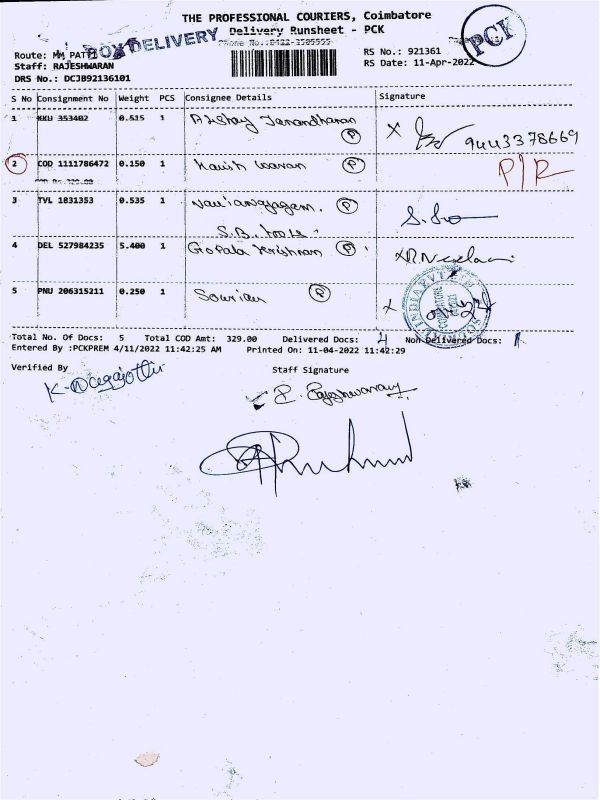 THE PROFESSIONAL COURIERS, Coimbatore
Delivery Runsheet - PCK
PCK
BOX DELIVERY
Phone No.:0422-3505555
Route: MM PATTI
RS No.: 921361
Staff: RAJESHWARAN
RS Date: 11-Apr-2022
DRS No.: DCJB92136101
S No Consignment No Weight PCS Consignee Details Signature
1 KKU 353402 0.515 1 Akshay Janardharan P X 9443378669
2 COD 1111786472 0.150 1 P P/R
COD Rs.329.00
3 TVL 1831353 0.535 1 P
S.B. tools
4 DEL 527984235 5.400 1 Gopala Krishnan P
5 PNU 206315211 0.250 1 P X
Total No. Of Docs: 5 Total COD Amt: 329.00 Delivered Docs: 4 Non Delivered Docs: 1
Entered By :PCKPREM 4/11/2022 11:42:25 AM Printed On: 11-04-2022 11:42:29
Verified By Staff Signature